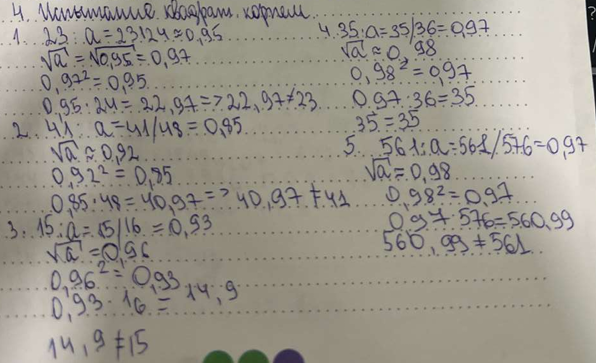 4. Испытание квадрат. корнем
1. 23: a=23/24≈0,95
√a=√0,95=0,97
0,97²=0,95
0,95·24=22,97=>22,97≠23
2. 41: a=41/48=0,85
√a≈0,92
0,92²=0,85
0,85·48=40,97=>40,97≠41
3. 15: a=15/16=0,93
√a=0,96
0,96²=0,93
0,93·16=14,9
14,9≠15
4. 35: a=35/36=0,97
√a≈0,98
0,98²=0,97
0,97·36=35
35=35
5. 561: a=561/576=0,97
√a=0,98
0,98²=0,97
0,97·576=560,99
560,99≠561